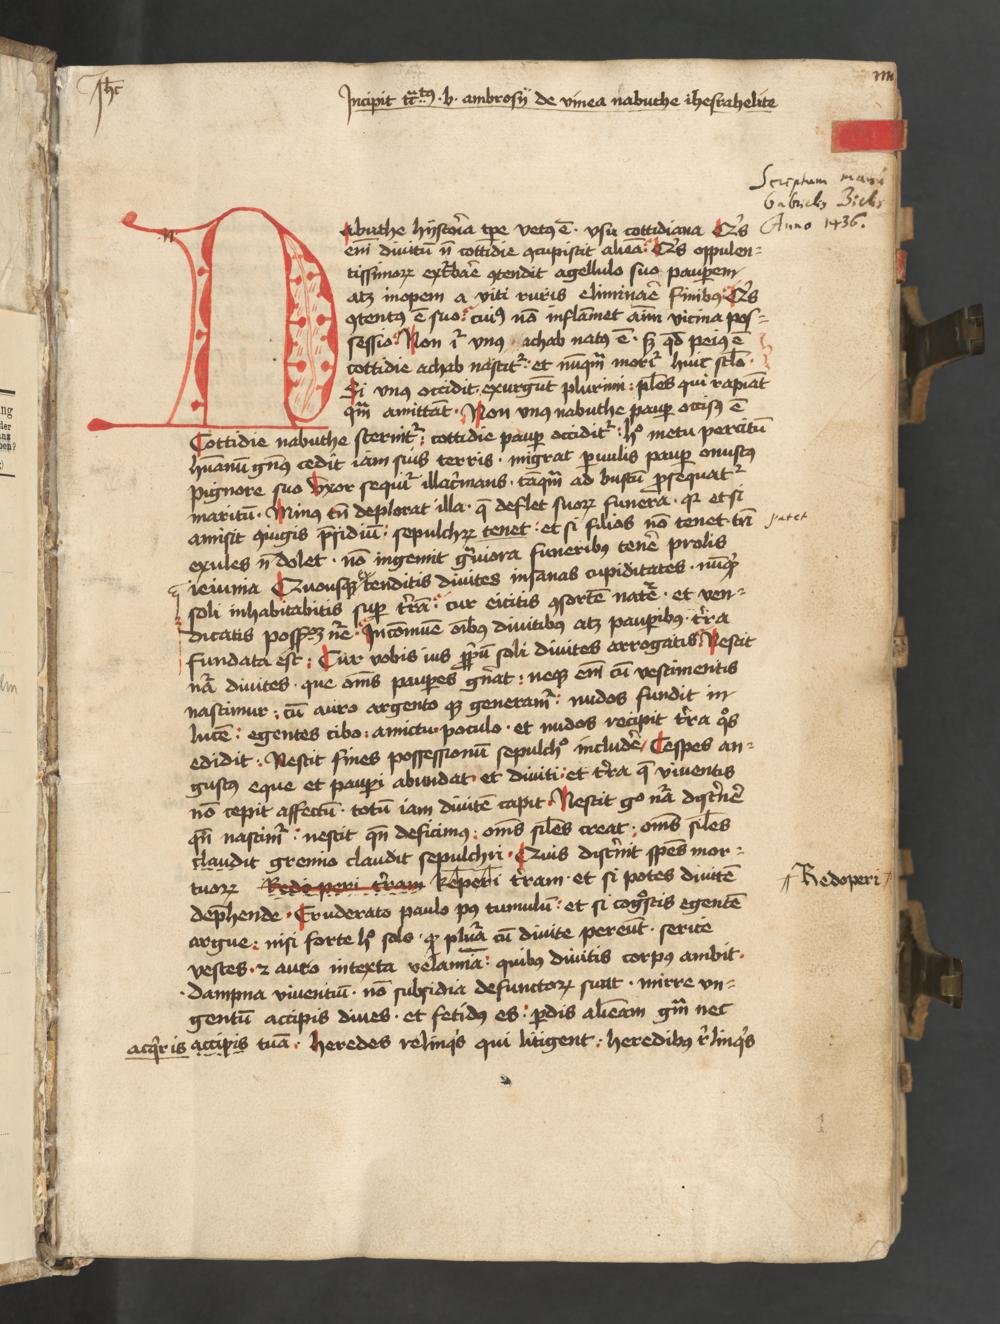 Jhc
m
Incipit tractatus b. ambrosij de vinea nabuthe ihesrahelite
Scriptum manu
Gabrielis Bielis
Anno 1436.
Nabuthe hÿstoria tpe vetus ē · vsu cottidiana Qis
em diuitū nō cottidie ɔcupiscit aliena Qis oppulen=
tissimorꝝ ext̄bare ɔtendit agellulo suo pauperem
atqꝫ inopem a viti ruris eliminare finibus Qis
ɔtentus ē suo : cuius nō inflamet aīm vicina pos=
sessio Non igr̄ vnus achab natus ē · sꝫ qd peius ē
cottidie achab nascitr̄ : et nūqm̄ morit̄ huic sclo ·
Si vnus occidit exurgūt plurimi : ples qui rapiāt
qm̄ amittāt · Non vnus nabuthe paupꝛ occisus ē
Cottidie nabuthe sternitr̄ : cottidie paupꝛ occiditr̄ : hº metu percitū
hūanū gnus cedit iam suis terris · migrat cum pvulis paupꝛ onustus
pignore suo Vxor sequit̄ illacrimans · tāqm̄ ad bustū ꝓsequat̄
maritū · Minus tn̄ deplorat illa · q̄ deflet suorꝝ funera · qꝛ etsi
amisit ɔiugis p̄sidiū : sepulchrꝝ tenet : et si filios nō tenet tn̄
patet
exules nō dolet · nō ingemit gͣuiora funeribus tenere prolis
ieiunia Quousqꝫ extenditis diuites insanas cupiditates · nūqͥd
soli inhabitabitis supꝛ trā : cur eicitis ɔsortē nate · et ven=
dicatis poss nre · In cōmūe oībus diuitibus atqꝫ pauperibus tr̄a
fundata est : Cur vobis ius ppꝛiū soli diuites arrogatis Nescit
nāͣ diuites · que oms pauperes gn̄at : neqꝫ em̄ cū vestimentis
nascimur : cū auro argento qꝫ generamr̄ : nudos fundit in
lucē : egentes cibo : amictu poculo · et nudos recipit tr̄a qͦs
edidit : Nescit fines possessionū sepulchͦ includere Cespes an=
gustus eque et pauperi abundat et diuiti : et tr̄a q̄ viuentis
nō cepit affectū · totū iam diuitē capit · Nescit gͦ nāͣ discernere
qn̄ nascimr̄ : nescit qn̄ deficimus : oms siles creat : oms siles
claudit gremio claudit sepulchri · Quis discernit spēs mor=
tuorꝝ Redo peri tr̄am Reperi tr̄am · et si potes diuitē
Redoperi
dep̄hende · Eruderato paulo pꝰ tumulū : et si cognoscis egentē
argue : nisi forte hº solo · qꝛ plura cū diuite pereūt · serice
vestes · ⁊ auro intexta velamīa : quibus diuitis corpus ambit ·
dampna viuentiū · nō subsidia defunctorꝝ sunt · mirre vn=
gentū accipis diues · et fetidus es : perdis alienam gr̄am nec
acqͥris accipis tuā · heredes relinqͥs qui litigent : heredibus r̄linqͥs